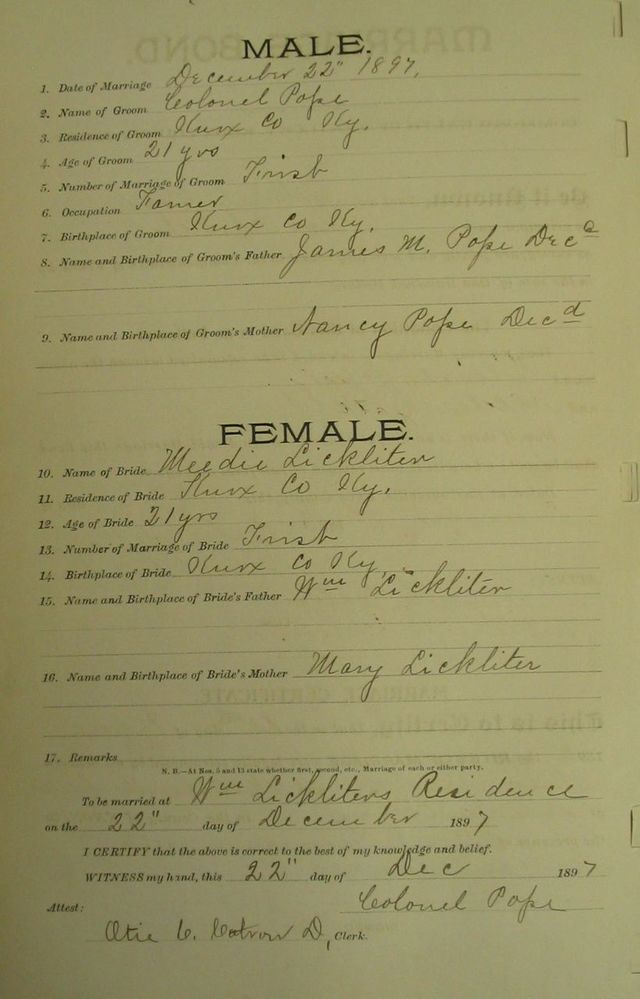 MALE.
1. Date of Marriage December 22" 1897.
2. Name of Groom Colonel Pope
3. Residence of Groom Knox Co Ky.
4. Age of Groom 21 yrs
5. Number of Marriage of Groom First
6. Occupation Famer
7. Birthplace of Groom Knox Co Ky.
8. Name and Birthplace of Groom's Father James M. Pope Decd
9. Name and Birthplace of Groom's Mother Nancy Pope Decd
FEMALE.
10. Name of Bride Meedie Lickliter
11. Residence of Bride Knox Co Ky.
12. Age of Bride 21 yrs
13. Number of Marriage of Bride First
14. Birthplace of Bride Knox Co Ky
15. Name and Birthplace of Bride's Father Wm Lickliter
16. Name and Birthplace of Bride's Mother Mary Lickliter
17. Remarks
N. B.—At Nos. 5 and 13 state whether first, second, etc., Marriage of each or either party.
To be married at Wm Lickliters Residence
on the 22" day of December 1897
I CERTIFY that the above is correct to the best of my knowledge and belief.
WITNESS my hand, this 22" day of Dec 1897
Colonel Pope
Attest:
C. Catron D, Clerk.